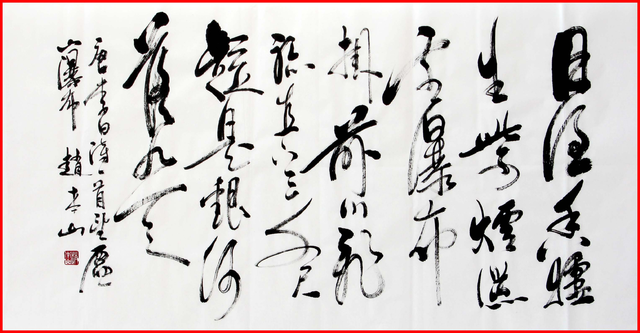 日照香爐
生紫煙遥
看瀑布
掛前川飛
流直下三千尺
疑是銀河
落九天
唐李白詩一首望廬
山瀑布 趙山